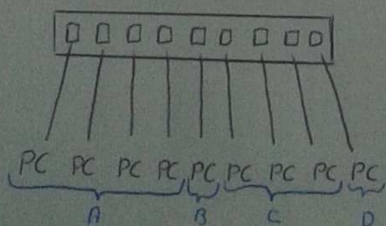 PC PC PC PC PC PC PC PC PC
A B C D